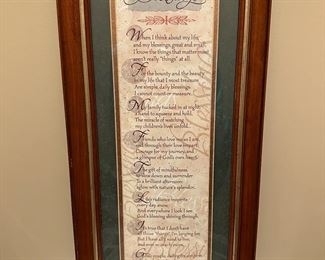 When I think about my life
and my blessings, great and small,
I know the things that matter most
aren't really "things" at all.
For the bounty and the beauty
in my life that I most treasure
Are simple, daily blessings
I cannot count or measure.
My family tucked in at night,
a hand to squeeze and hold,
The miracle of watching
my children's lives unfold.
Friends who love me as I am
and through their love impart
Courage for my journey, and
a glimpse of God's own heart.
The gift of mindfulness
to slow down and surrender
To a brilliant afternoon
aglow with nature's splendor.
radiance imprints
every day anew,
And everywhere I look I see
God's blessing shining through.
true that I don't have
all those "things" I'm longing for
But I have all I need to live
and
simple, daily